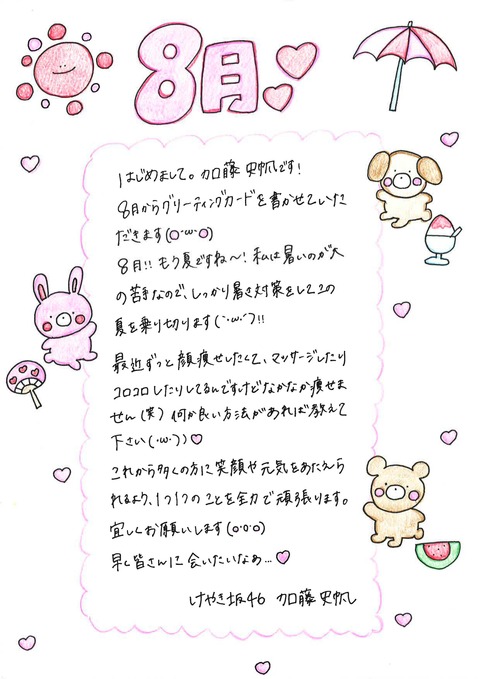 8月
はじめまして。加藤 史帆です!
8月からグリーティングカードを書かせていた
だきます(○·ω·○)
8月!!もう夏ですね〜!私は暑いのが大
の苦手なので、しっかり暑さ対策をしてこの
夏を乗り切ります(`·ω·´)!!
最近ずっと顔痩せしたくて、マッサージしたり
コロコロしたりしてるんですけどなかなか痩せま
せん(笑) 何か良い方法があれば教えて
下さい(·ω·`)♡
これから多くの方に笑顔や元気をあたえら
れるよう、1つ1つのことを全力で頑張ります。
宜しくお願いします(○·○·○)
早く皆さんに会いたいなぁ…♡
けやき坂46 加藤 史帆